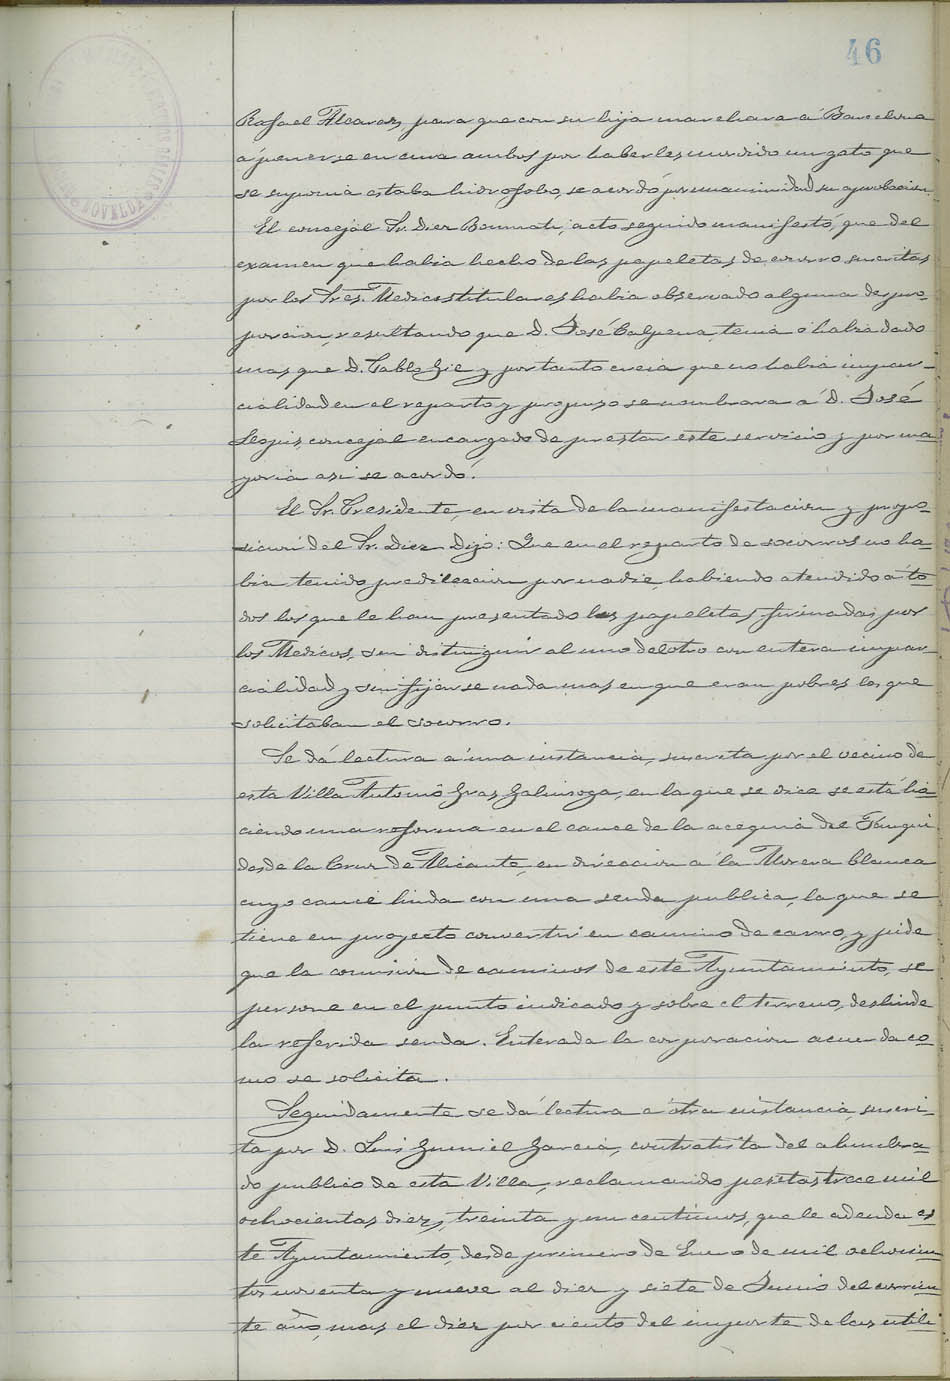 46
NOVELDA
Rafael Alcaraz, para que con su hija marchara á Barcelona
á ponerse en cura ambos por haberles mordido un gato que
se suponia estaba hidrofobo, se acordó por unanimidad su aprobacion.
El concejal Sr. Diez Bonmati, acto seguido manifestó, que del
examen que habia hecho de las papeletas de socorro suscritas
por los Sres. Medicos titulares habia observado alguna despro-
porcion, resultando que D. José Calpena, tenia ó habia dado
mas que D. Pablo Gil y por tanto creia que no habia impar-
cialidad en el reparto y propuso se nombrara á D. José
Llopis, concejal encargado de prestar este servicio y por ma-
yoria asi se acordó.
El Sr. Presidente, en vista de la manifestacion y propo-
sicion del Sr. Diez Dijo: Que en el reparto de socorros no ha-
bia tenido predileccion por nadie, habiendo atendido á to-
dos los que le han presentado las papeletas firmadas por
los Medicos, sin distinguir al uno del otro con entera impar-
cialidad y sin fijarse nada mas en que eran pobres los que
solicitaban el socorro.
Se dá lectura á una instancia, suscrita por el vecino de
esta Villa Antonio Gras Galinsoga, en la que se dice se está ha-
ciendo una reforma en el cauce de la acequia del Fangui
desde la Cruz de Alicante, en direccion á la Morera blanca
cuyo cauce linda con una senda publica, la que se
tiene en proyecto convertir en camino de carro, y pide
que la comision de caminos de este Ayuntamiento, se
persone en el punto indicado y sobre el terreno, deslinde
la referida senda. Enterada la corporacion acuerda co-
mo se solicita.
Seguidamente se dá lectura á otra instancia, suscri-
ta por D. Luis Gumiel Garcia, contratista del alumbra-
do publico de esta Villa, reclamando pesetas trece mil
ochocientas diez, treinta y un centimos, que le adeuda es-
te Ayuntamiento, desde primero de Enero de mil ochocien-
tos noventa y nueve al diez y siete de Junio del corrien-
te año, mas el diez por ciento del importe de las utili-